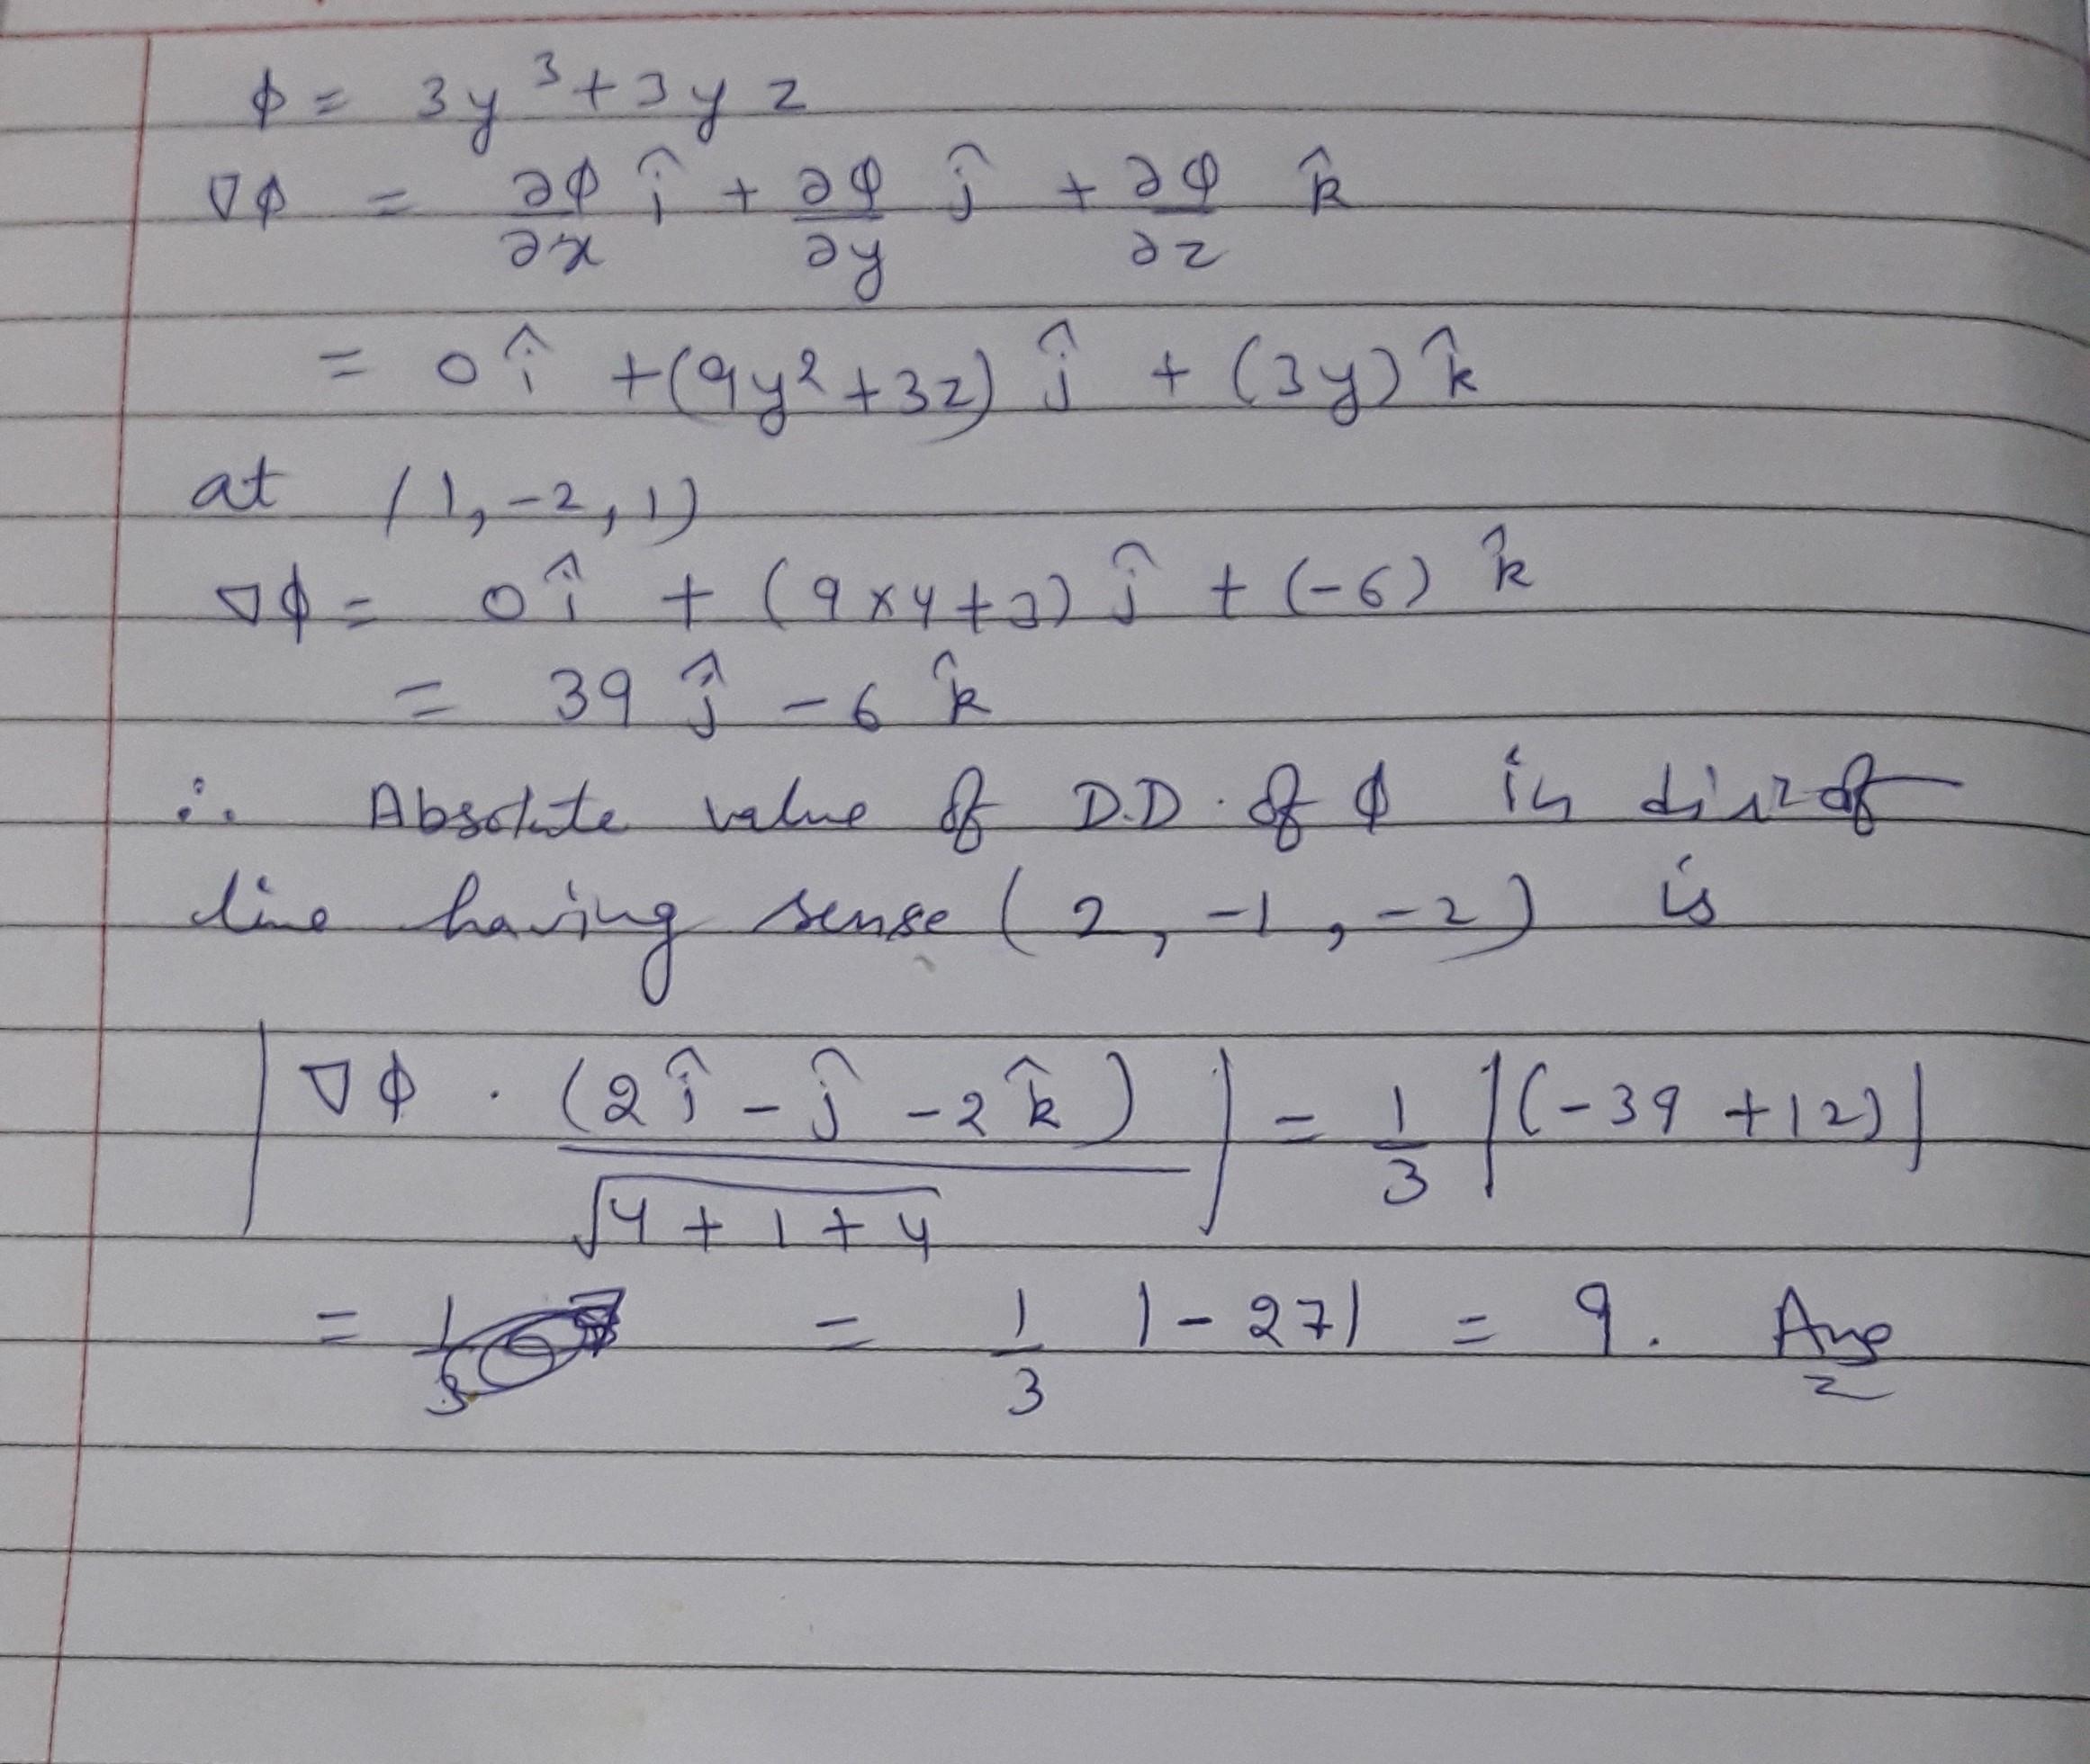 φ = 3y³ + 3yz
∇φ = ∂φ/∂x î + ∂φ/∂y ĵ + ∂φ/∂z k̂
= 0î + (9y² + 3z) ĵ + (3y) k̂
at (1, -2, 1)
∇φ = 0î + (9×4+3) ĵ + (-6) k̂
= 39 ĵ - 6 k̂
∴ Absolute value of D.D. of φ in dirⁿ of
line having sense (2, -1, -2) is
|∇φ · (2î - ĵ - 2k̂)/√(4+1+4)| = 1/3 |(-39 + 12)|
= 1/3 = 1/3 |-27| = 9. Ans